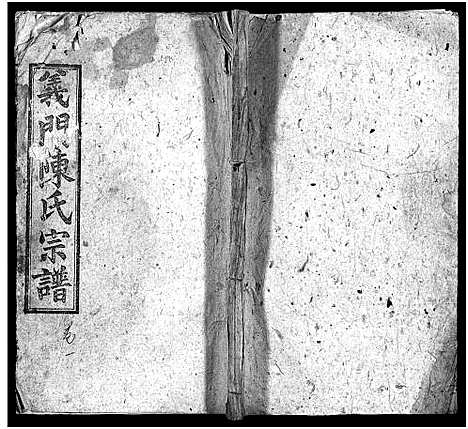 義門陳氏宗譜
卷一